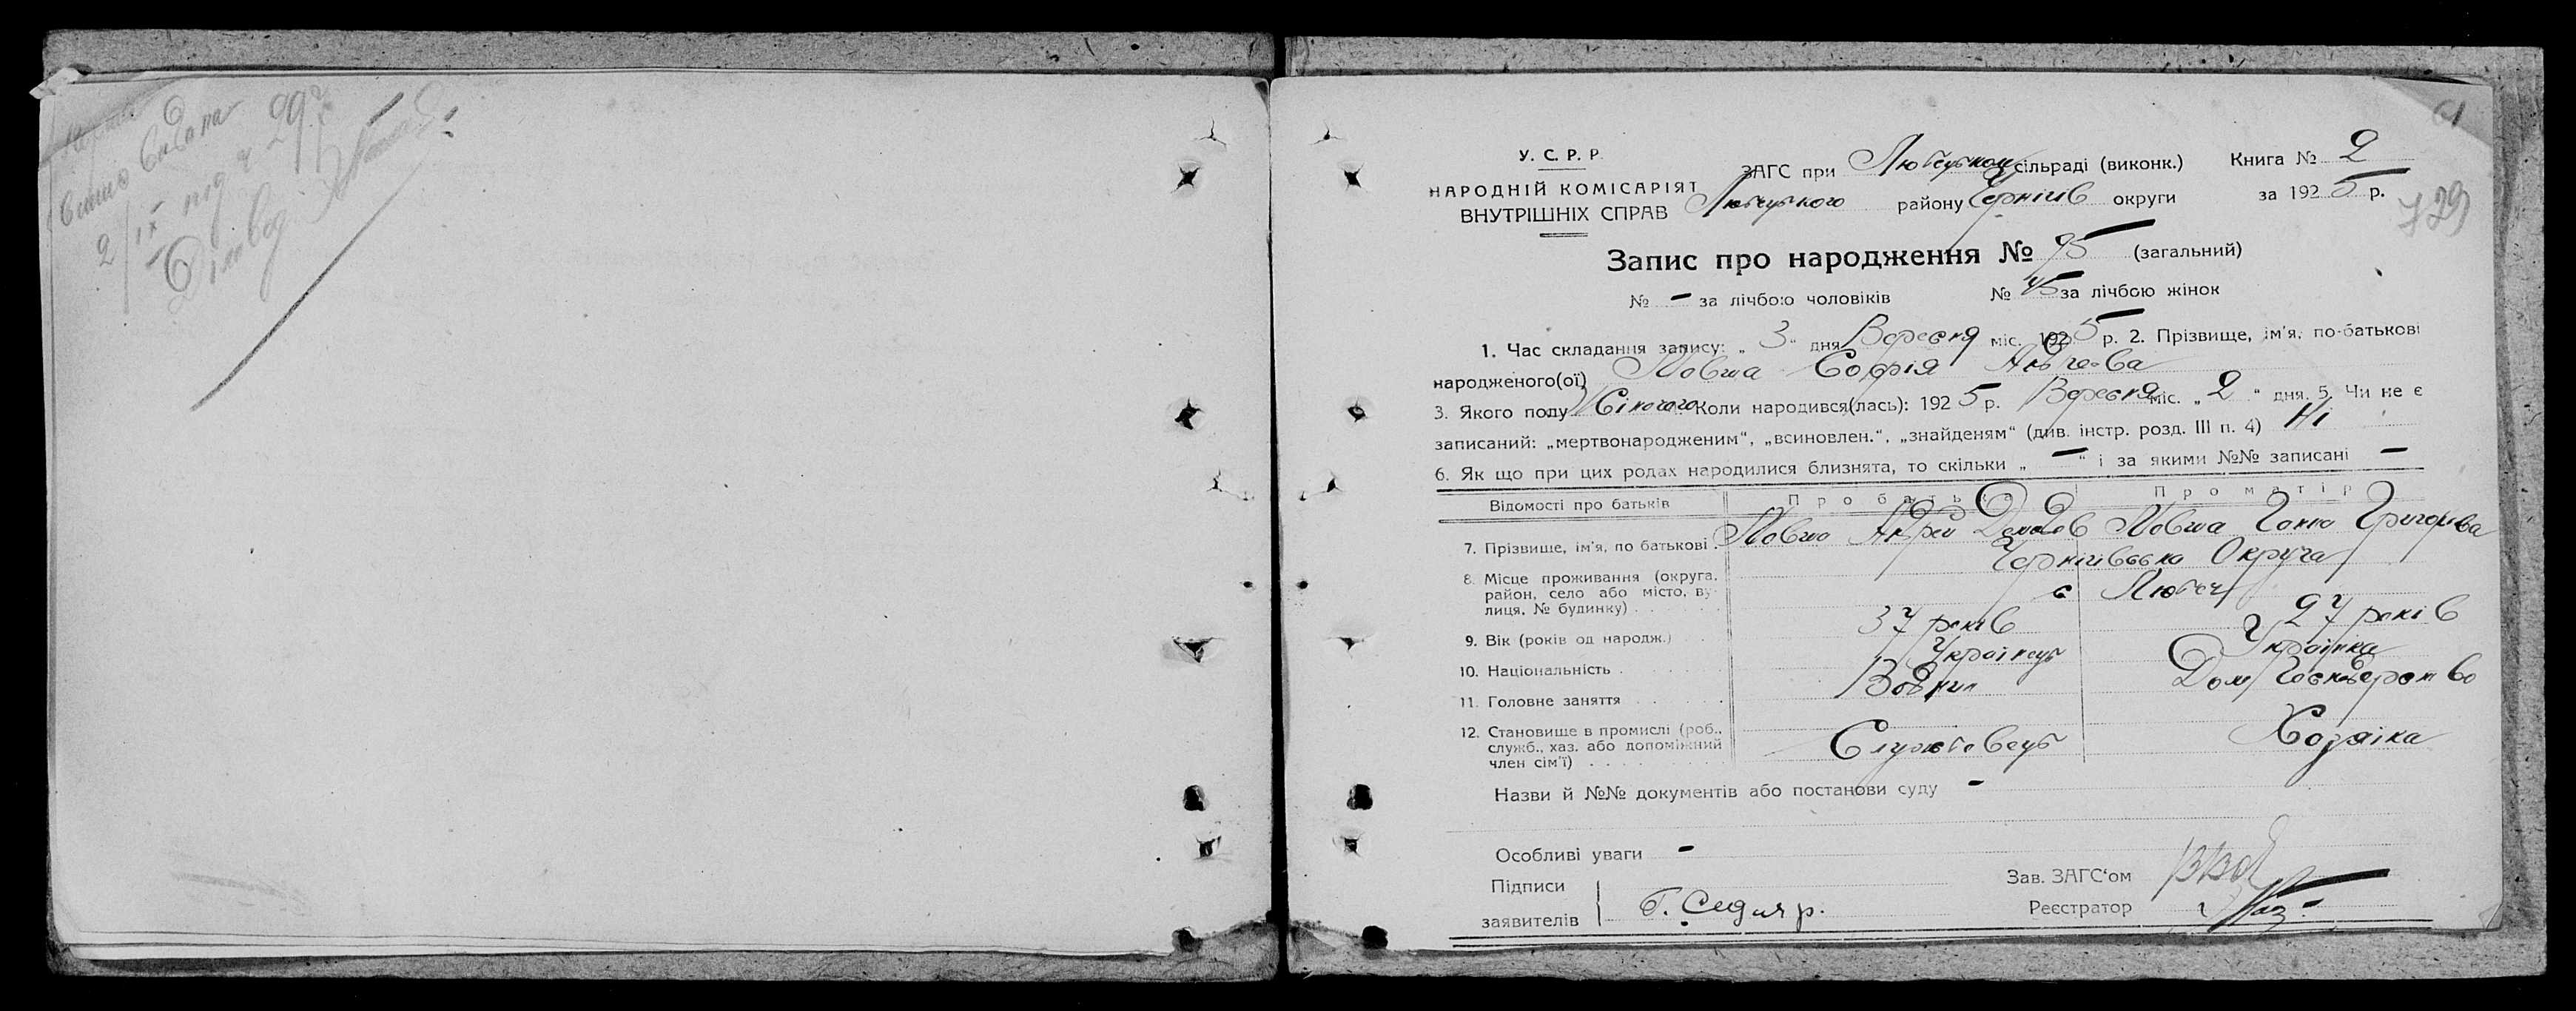 2/IX
29 г.
61
У. С. Р. Р.
НАРОДНІЙ КОМІСАРІЯТ
ВНУТРІШНІХ СПРАВ
ЗАГС при Любецьком сільраді (виконк.)
Любецького району Чернігів округи
Книга № 2
за 1925 р.
729
Запис про народження № 95 (загальний)
№ - за лічбою чоловіків № 45 за лічбою жінок
1. Час складання запису: „ 3 “ дня Вересня міс. 1925 р. 2. Прізвище, ім'я, по-батькові
народженого(ої) Ковша Софія
3. Якого полу Жіночого Коли народився(лась): 1925 р. Вересня міс. „ 2 “ дня. 5. Чи не є
записаний: „мертвонародженим“, „всиновлен.“, „знайденям“ (див. інстр. розд. III п. 4) Ні
6. Як що при цих родах народилися близнята, то скільки „ - “ і за якими №№ записані -
Відомості про батьків Про батька Про матір
7. Прізвище, ім'я, по батькові . Ковша Андрей Демидов Ковша Ганна Григорьева
8. Місце проживання (округа, район, село або місто, вулиця, № будинку) Чернігівська Округа
с Любеч
9. Вік (років од народж.) 37 років 27 років
10. Національність . Українець Українка
11. Головне заняття Дом Господарство
12. Становище в промислі (роб., Службовець Хозяїка
служб., хаз. або допоміжний
член сім'ї)
Назви й №№ документів або постанови суду -
Особливі уваги -
Підписи
заявителів
Зав. ЗАГС'ом
Реєстратор